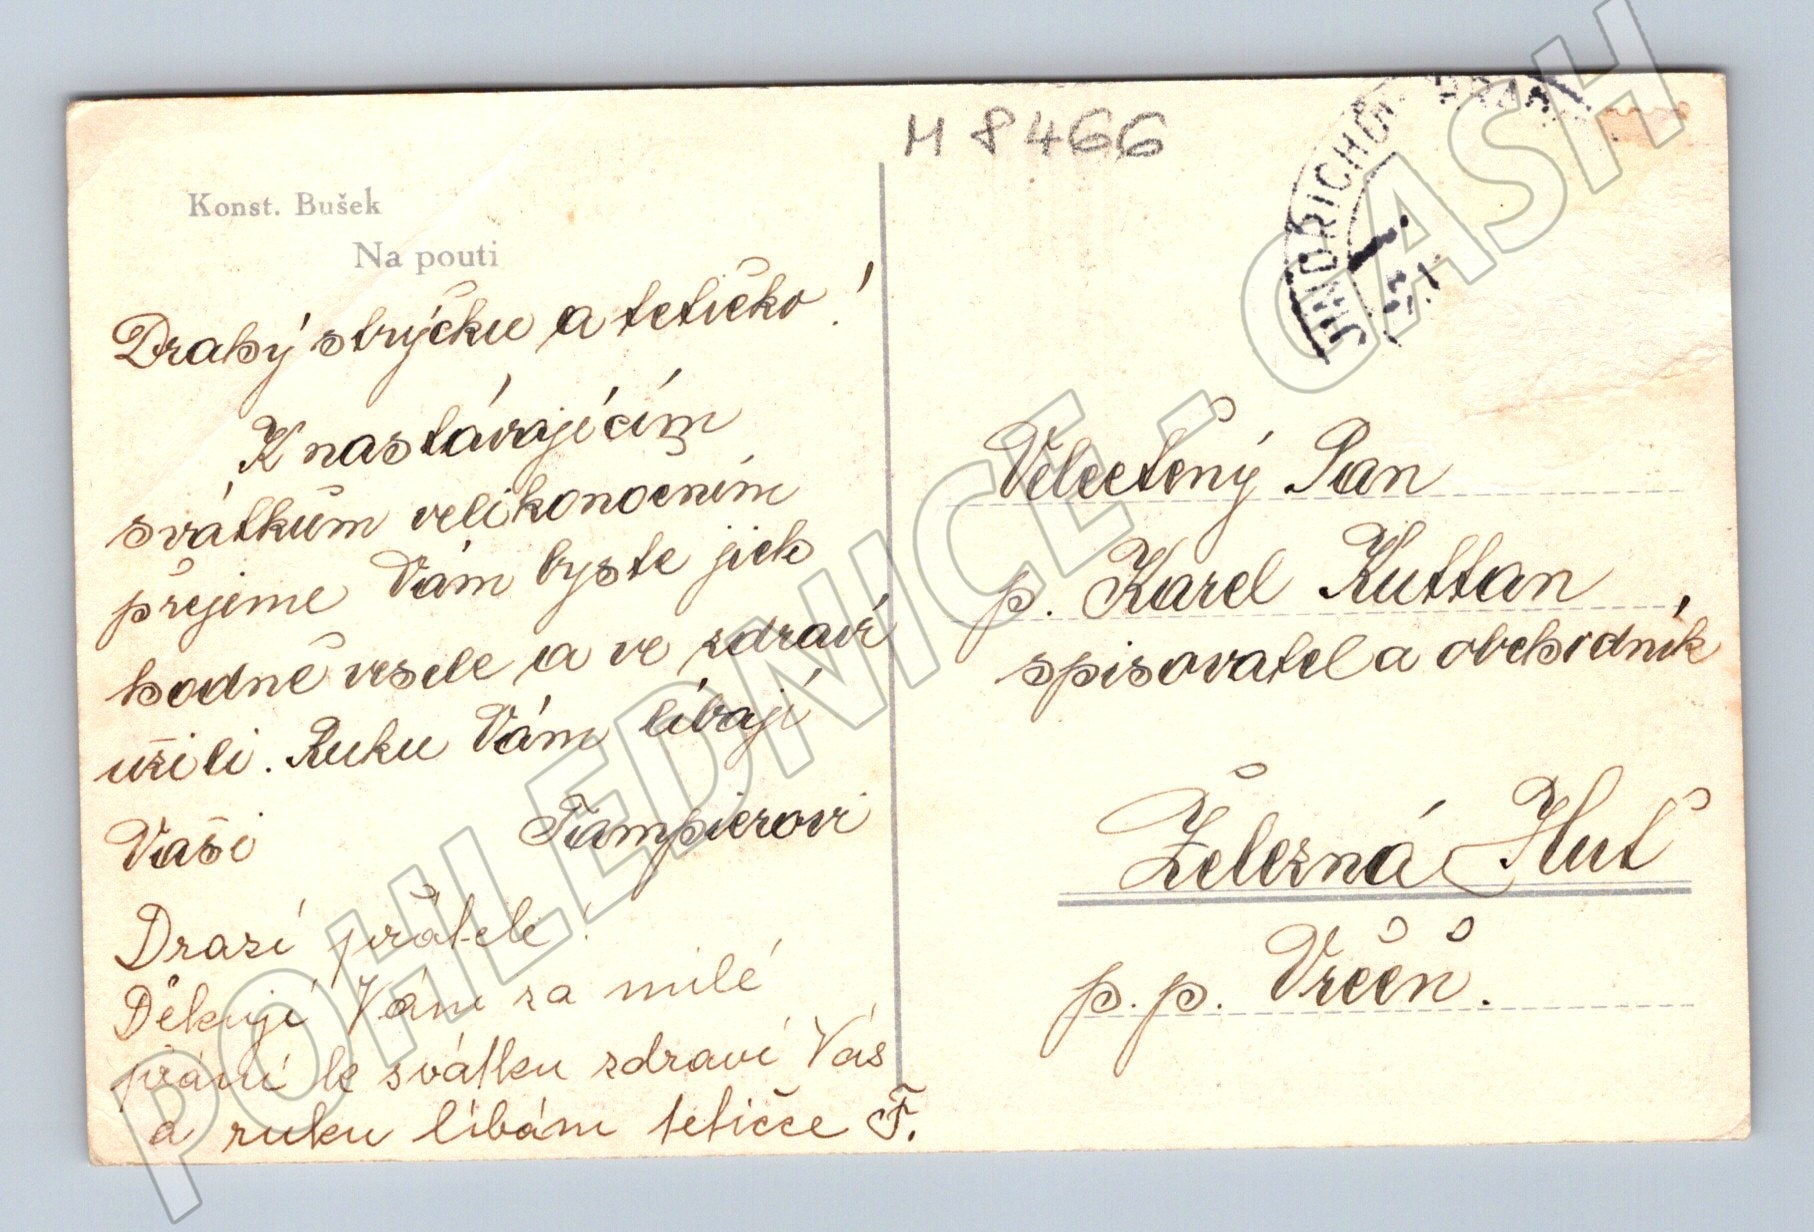 M 8466
Konst. Bušek
Na pouti
Drahý strýčku a tetičko!
K nastávajícím
svátkům velikonočním
přejeme Vám byste jich
hodně vesele a ve zdraví
užili. Ruku Vám líbají
Vaši Tampierovi
Drazí přátelé!
Děkuji Vám za milé
přání k svátku zdraví Vás
a ruku líbám tetičce F.
JINDŘICHŮV HRAD
Velectěný Pan
p. Karel Kuttan
spisovatel a obchodník
Železná Huť
p. p. Vrčeň.
POHLEDNICE - CASH